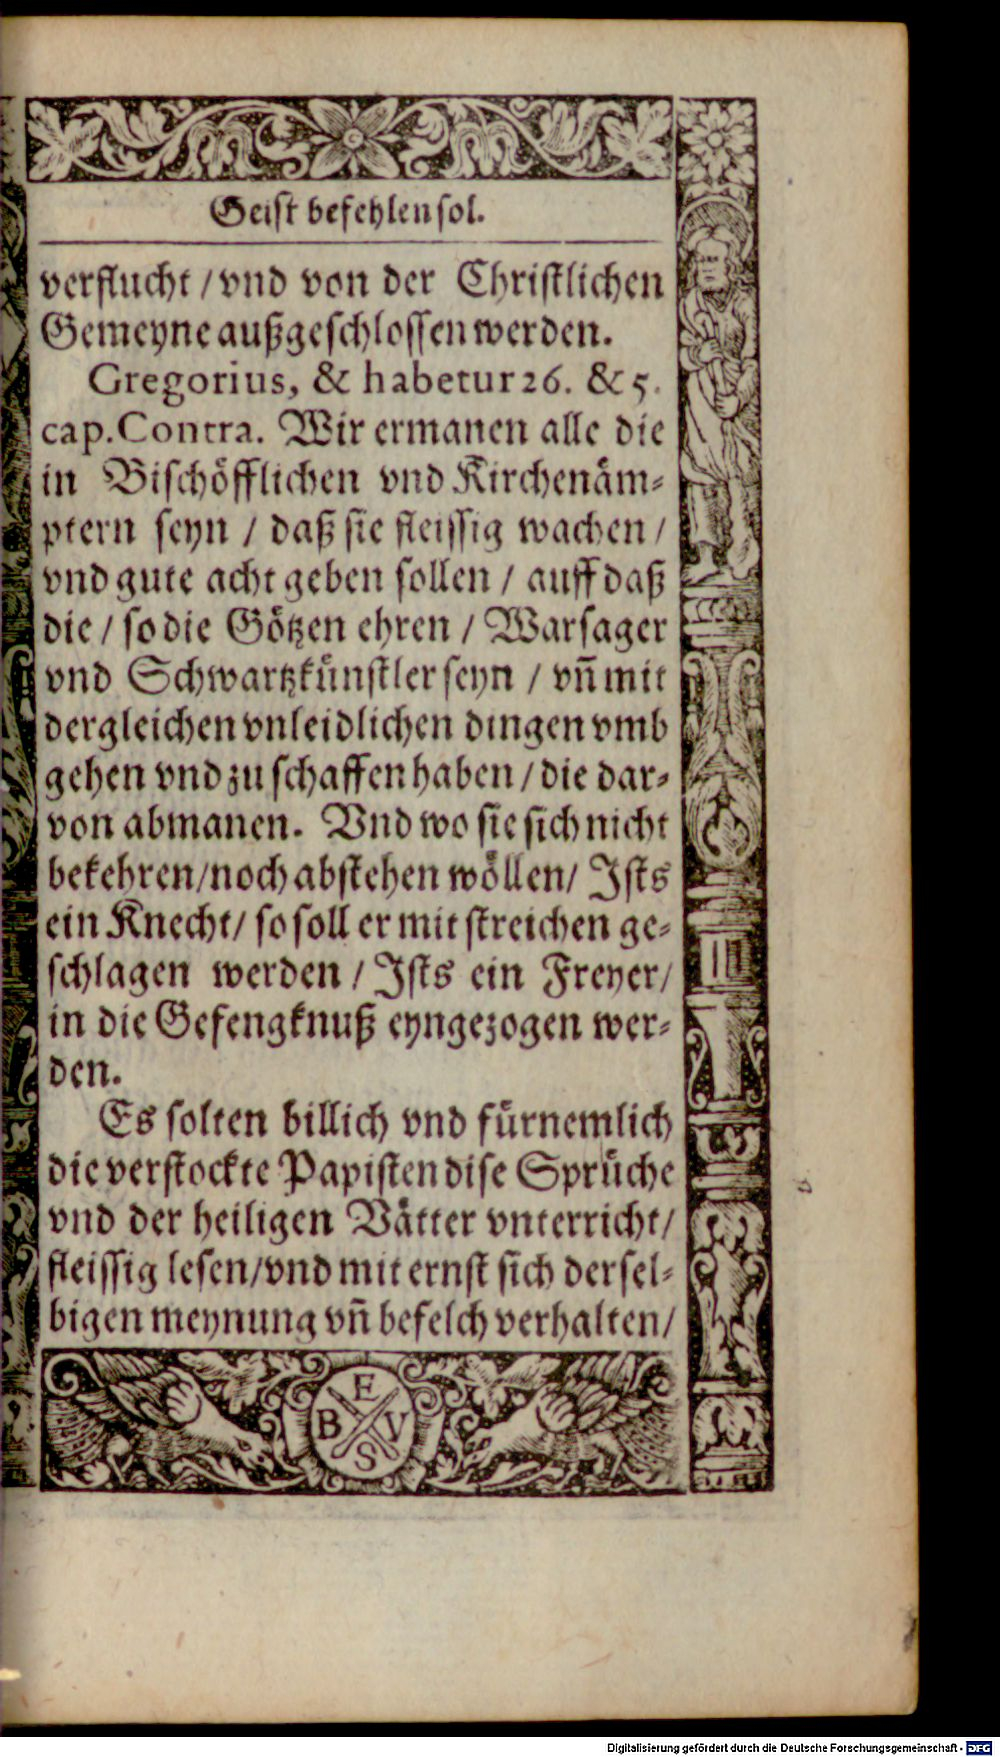 Geist befehlen sol.
verflucht / vnd von der Christlichen
Gemeyne außgeschlossen werden.
Gregorius, & habetur 26. & 5.
cap. Contra. Wir ermanen alle die
in Bischöfflichen vnd Kirchenäm⸗
ptern seyn / daß sie fleissig wachen /
vnd gute acht geben sollen / auff daß
die / so die Götzen ehren / Warsager
vnd Schwartzkünstler seyn / vn̄ mit
dergleichen vnleidlichen dingen vmb
gehen vnd zu schaffen haben / die dar⸗
von abmanen. Vnd wo sie sich nicht
bekehren / noch abstehen wöllen / Ists
ein Knecht / so soll er mit streichen ge⸗
schlagen werden / Ists ein Freyer /
in die Gefengknuß eyngezogen wer⸗
den.
Es solten billich vnd fürnemlich
die verstockte Papisten dise Sprüche
vnd der heiligen Vätter vnterricht /
fleissig lesen / vnd mit ernst sich dersel⸗
bigen meynung vn̄ befelch verhalten /
E
B V
S
Digitalisierung gefördert durch die Deutsche Forschungsgemeinschaft - DFG